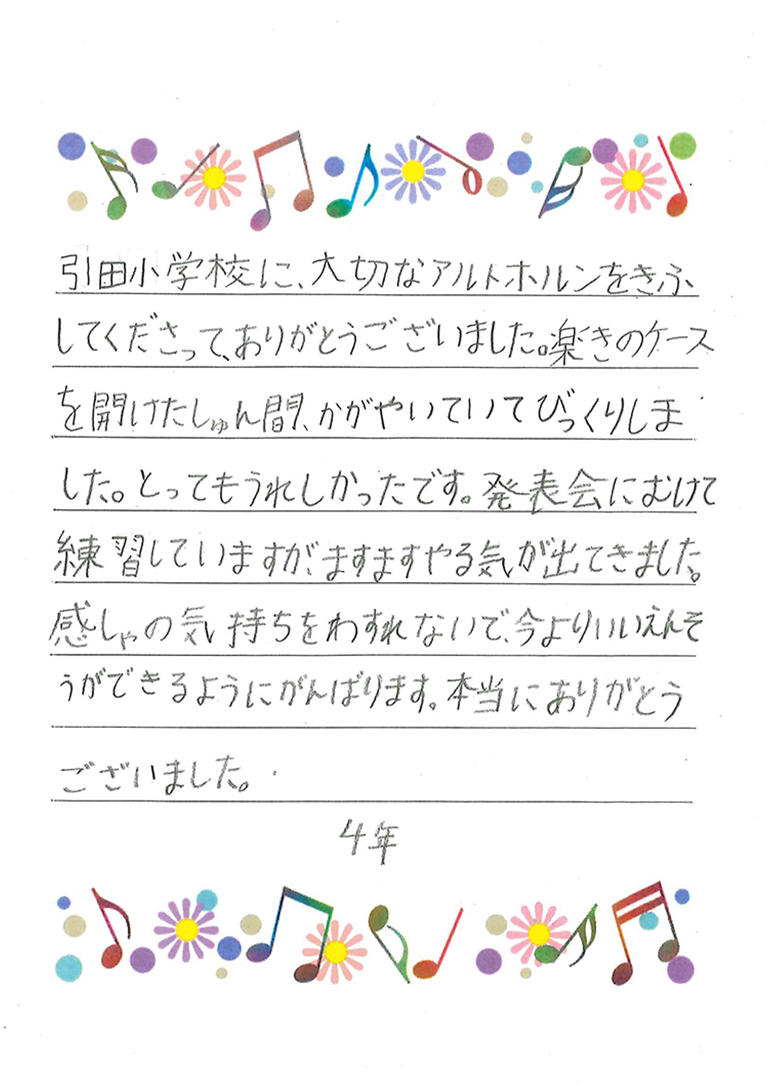 引田小学校に、大切なアルトホルンをきふ
してくださって、ありがとうございました。楽きのケース
を開けたしゅん間、かがやいていてびっくりしま
した。とってもうれしかったです。発表会にむけて
練習していますが、ますますやる気が出てきました。
感しゃの気持ちをわすれないで、今よりいいえんそ
うができるようにがんばります。本当にありがとう
ございました。
4年